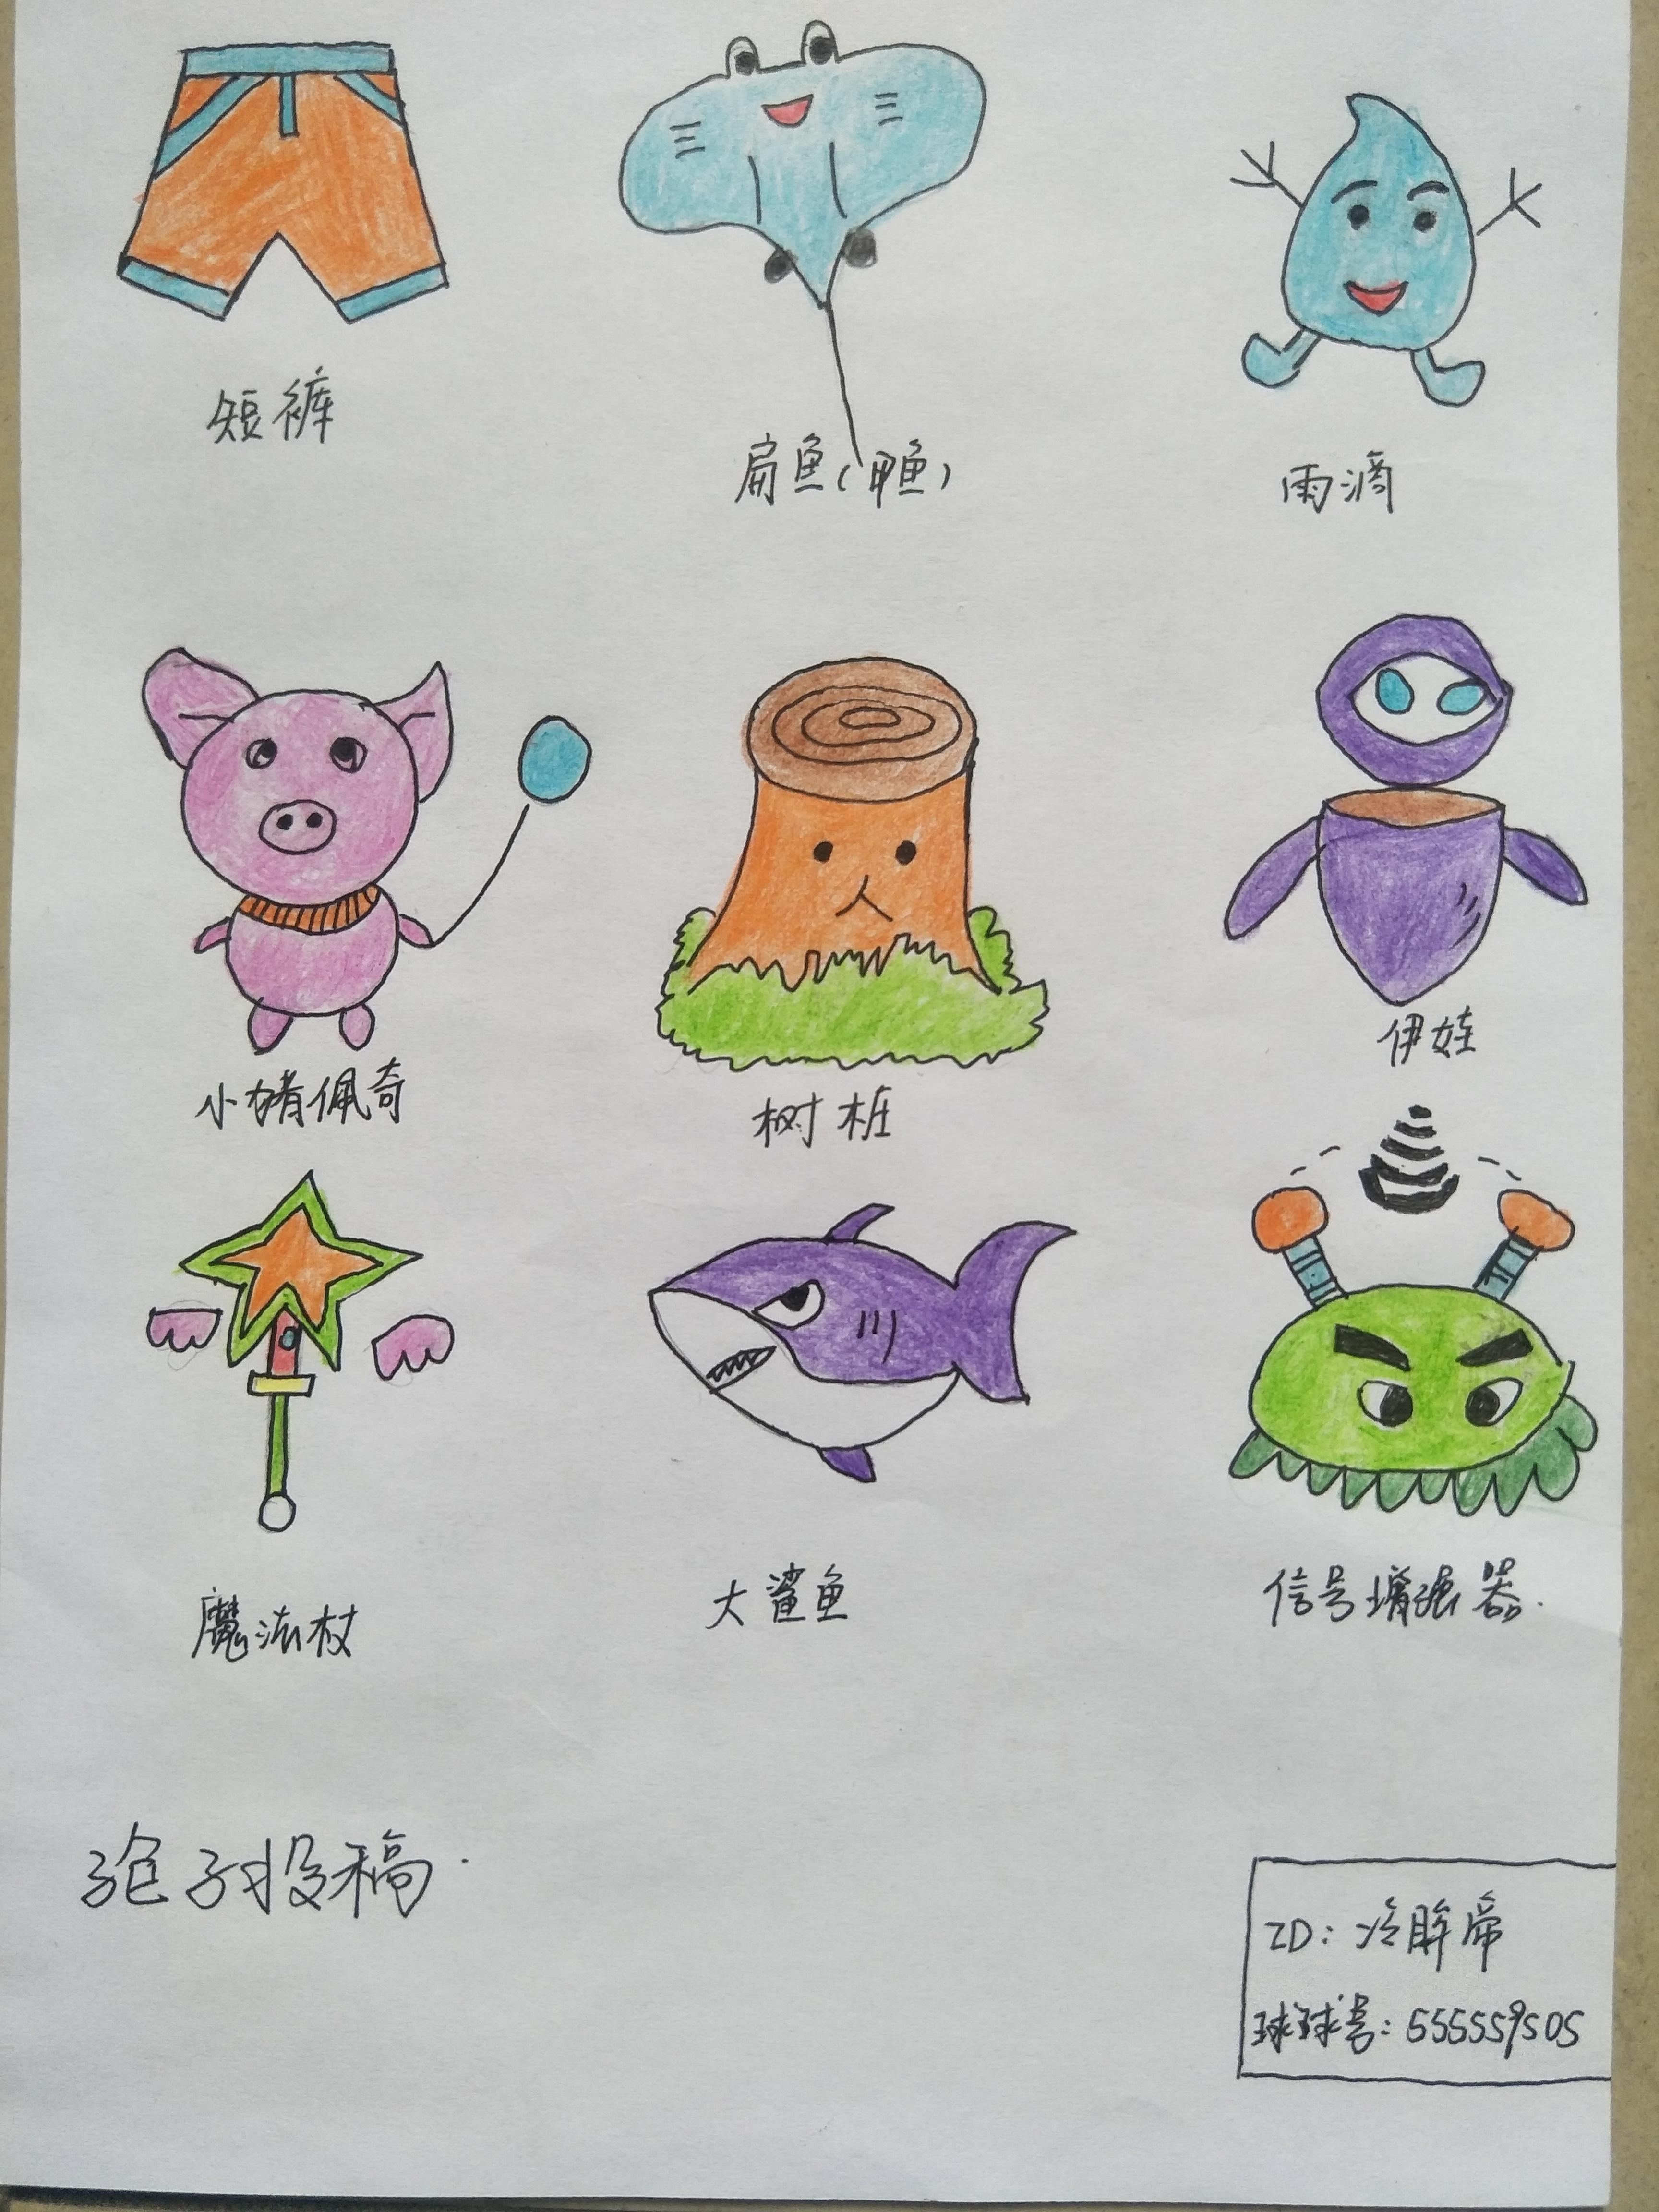 短裤
扁鱼(甲鱼)
雨滴
小猪佩奇
树桩
伊娃
魔法杖
大鲨鱼
信号增强器.
孢子投稿.
ID: 冷眸帝
球球号: 555559505